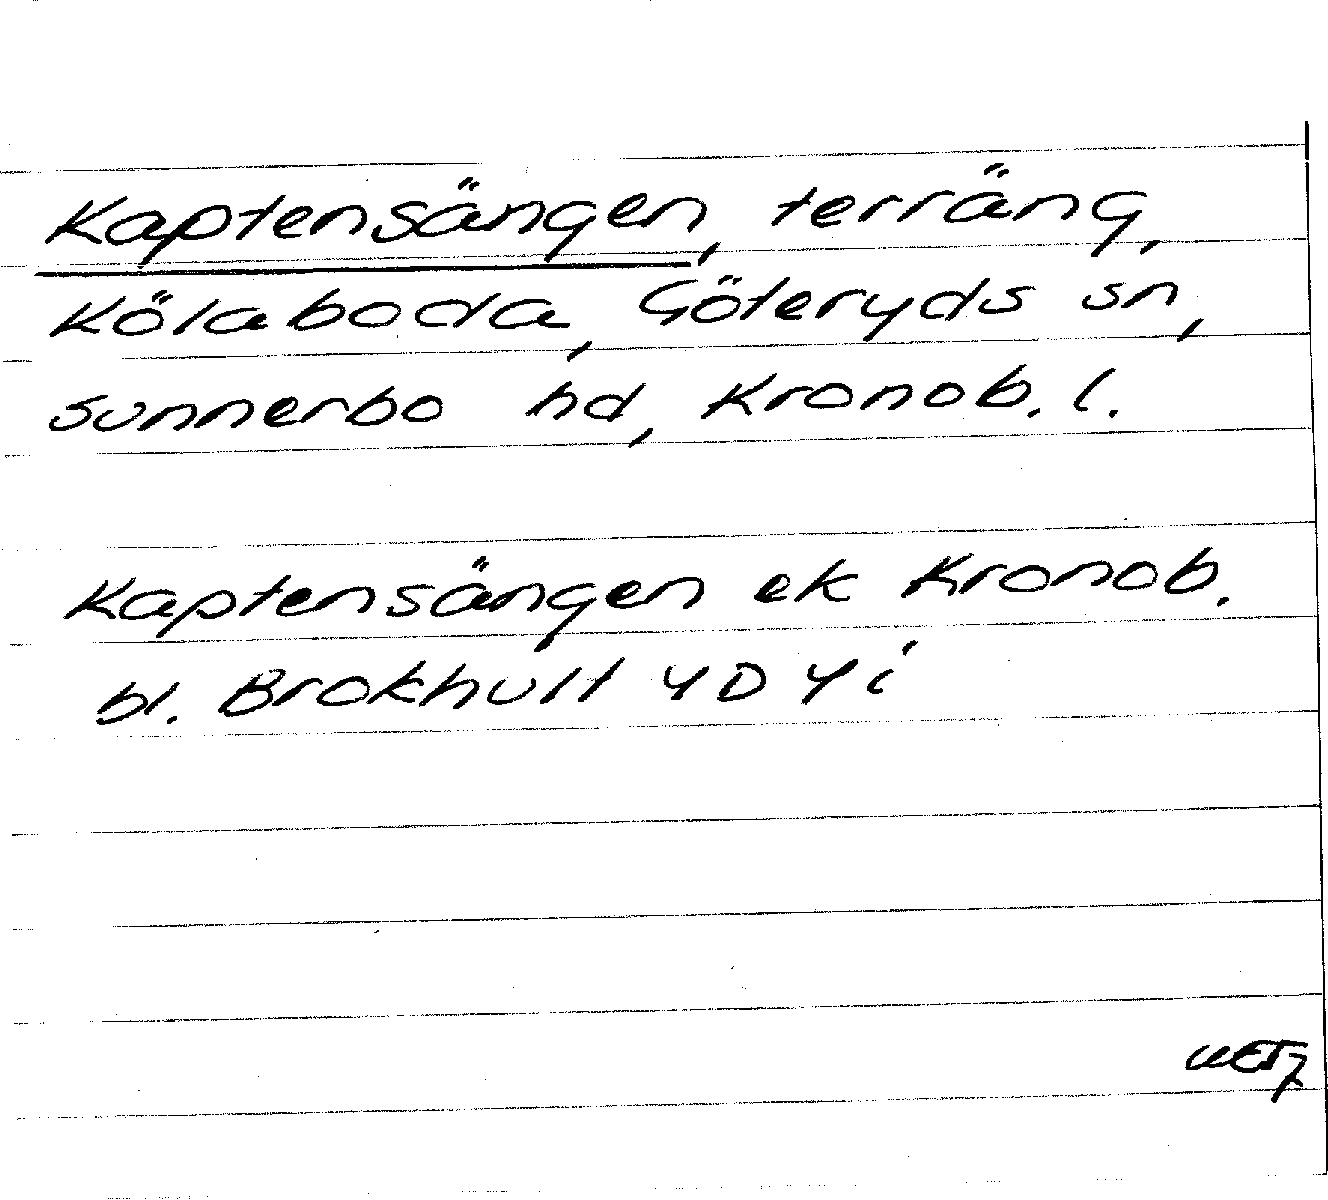 Kaptensängen, terräng,
Kölaboda, Göteryds sn,
sunnerbo hd, Kronob. l.
Kaptensängen ek Kronob.
bl. Brokhult 4D 4i